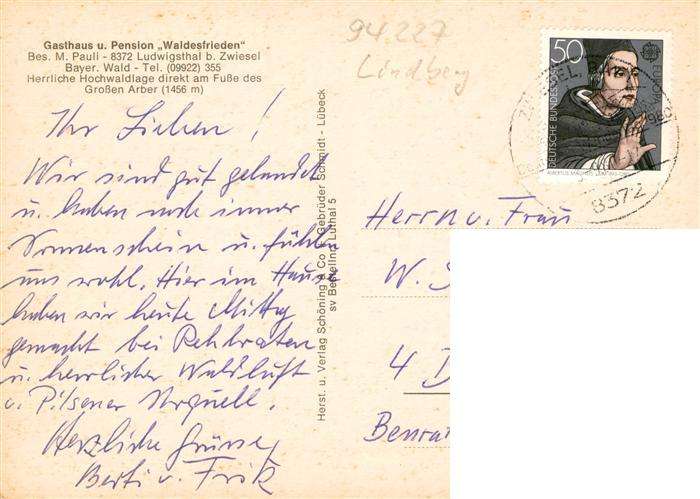 Gasthaus u. Pension „Waldesfrieden"
Bes. M. Pauli - 8372 Ludwigsthal b. Zwiesel
Bayer. Wald - Tel. (09922) 355
Herrliche Hochwaldlage direkt am Fuße des
Großen Arber (1456 m)
Ihr Lieben!
Wir sind gut gelandet
u. haben noch immer
Sonnenschein u. fühlen
uns wohl. Hier im Hause
haben wir heute Mittag
gemacht bei Rehbraten
u. herrlicher Waldluft
u. Pilsener Urquell.
Herzliche Grüsse
Berti u. Fritz
Herst. u. Verlag Schöning & Co + Gebrüder Schmidt - Lübeck
sv Bestellnr. Luthal 5
94.227
Lindberg
50
DEUTSCHE BUNDESPOST
EUROPA
ALBERTUS MAGNUS
8372
Herrn u. Frau
W. S
4 D
Benra